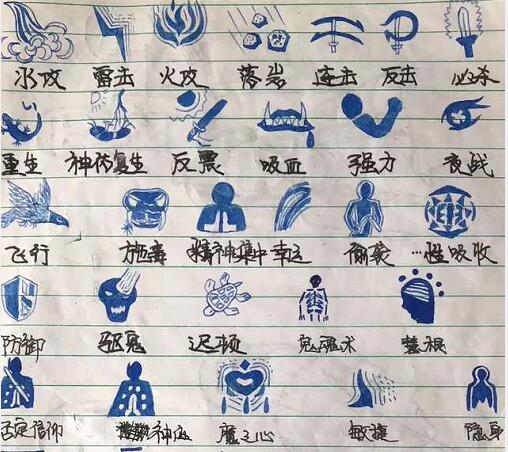 水攻 雷击 火攻 落岩 连击 反击 必杀
重生 神依复生 反震 吸血 强力 夜战
飞行 施毒 精神集中 幸运 偷袭 …性吸收
防御 驱鬼 迟顿 鬼魂术 慧根
否定信仰 神迹 魔之心 敏捷 隐身